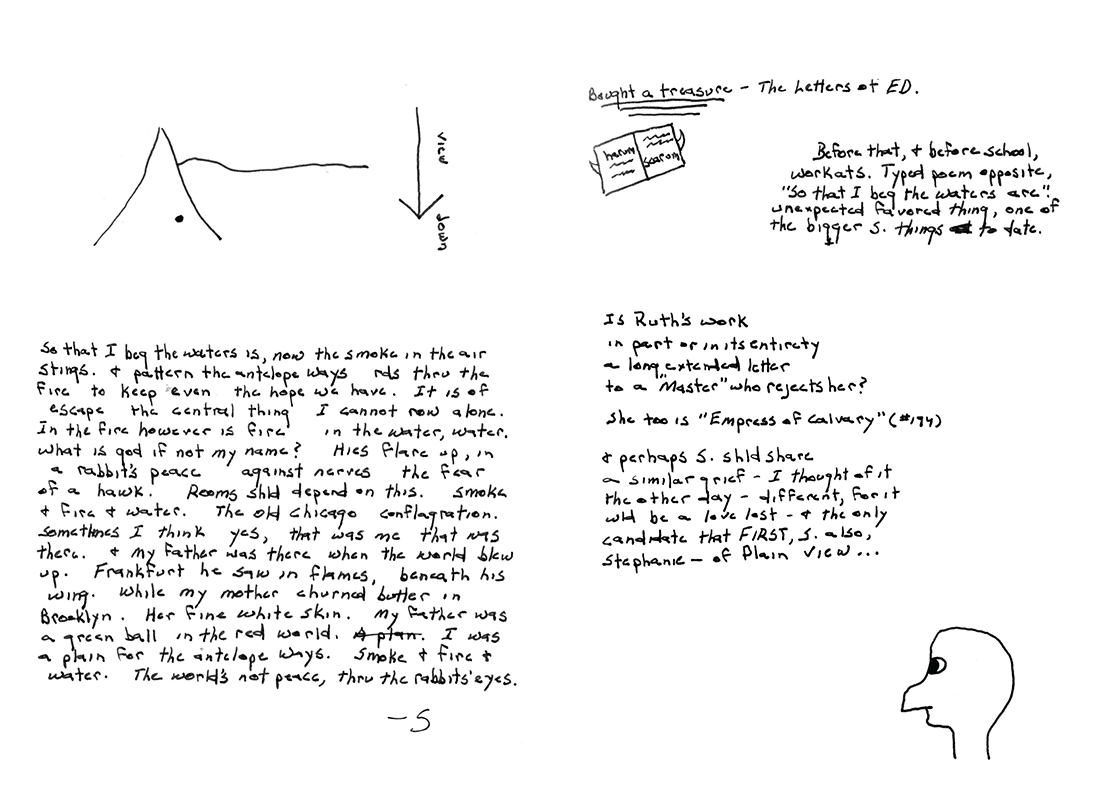 view
down
So that I beg the waters is, now the smoke in the air
stings. & pattern the antelope ways rds thru the
fire to keep even the hope we have. It is of
escape the central thing I cannot row alone.
In the fire however is fire in the water, water.
What is god if not my name? Hies flare up, in
a rabbit's peace against nerves the fear
of a hawk. Rooms shld depend on this. Smoke
& fire & water. The old Chicago conflagration.
Sometimes I think yes, that was me that was
there. & my father was there when the world blew
up. Frankfurt he saw in flames, beneath his
wing. While my mother churned butter in
Brooklyn. Her fine white skin. My father was
a green ball in the red world. A plan. I was
a plain for the antelope ways. Smoke & fire &
water. The world's not peace, thru the rabbits' eyes.
—S
Bought a treasure - The Letters of ED.
harum
scarum
Before that, & before school,
workats. Typed poem opposite,
"So that I beg the waters are".
unexpected favored thing, one of
the bigger S. things to date.
Is Ruth's work
in part or in its entirety
a long extended letter
to a "Master" who rejects her?
She too is "Empress of Calvary" (#194)
& perhaps S. shld share
a similar grief - I thought of it
the other day - different, for it
wld be a love lost - & the only
candidate that FIRST, S. also,
Stephanie - of Plain View...